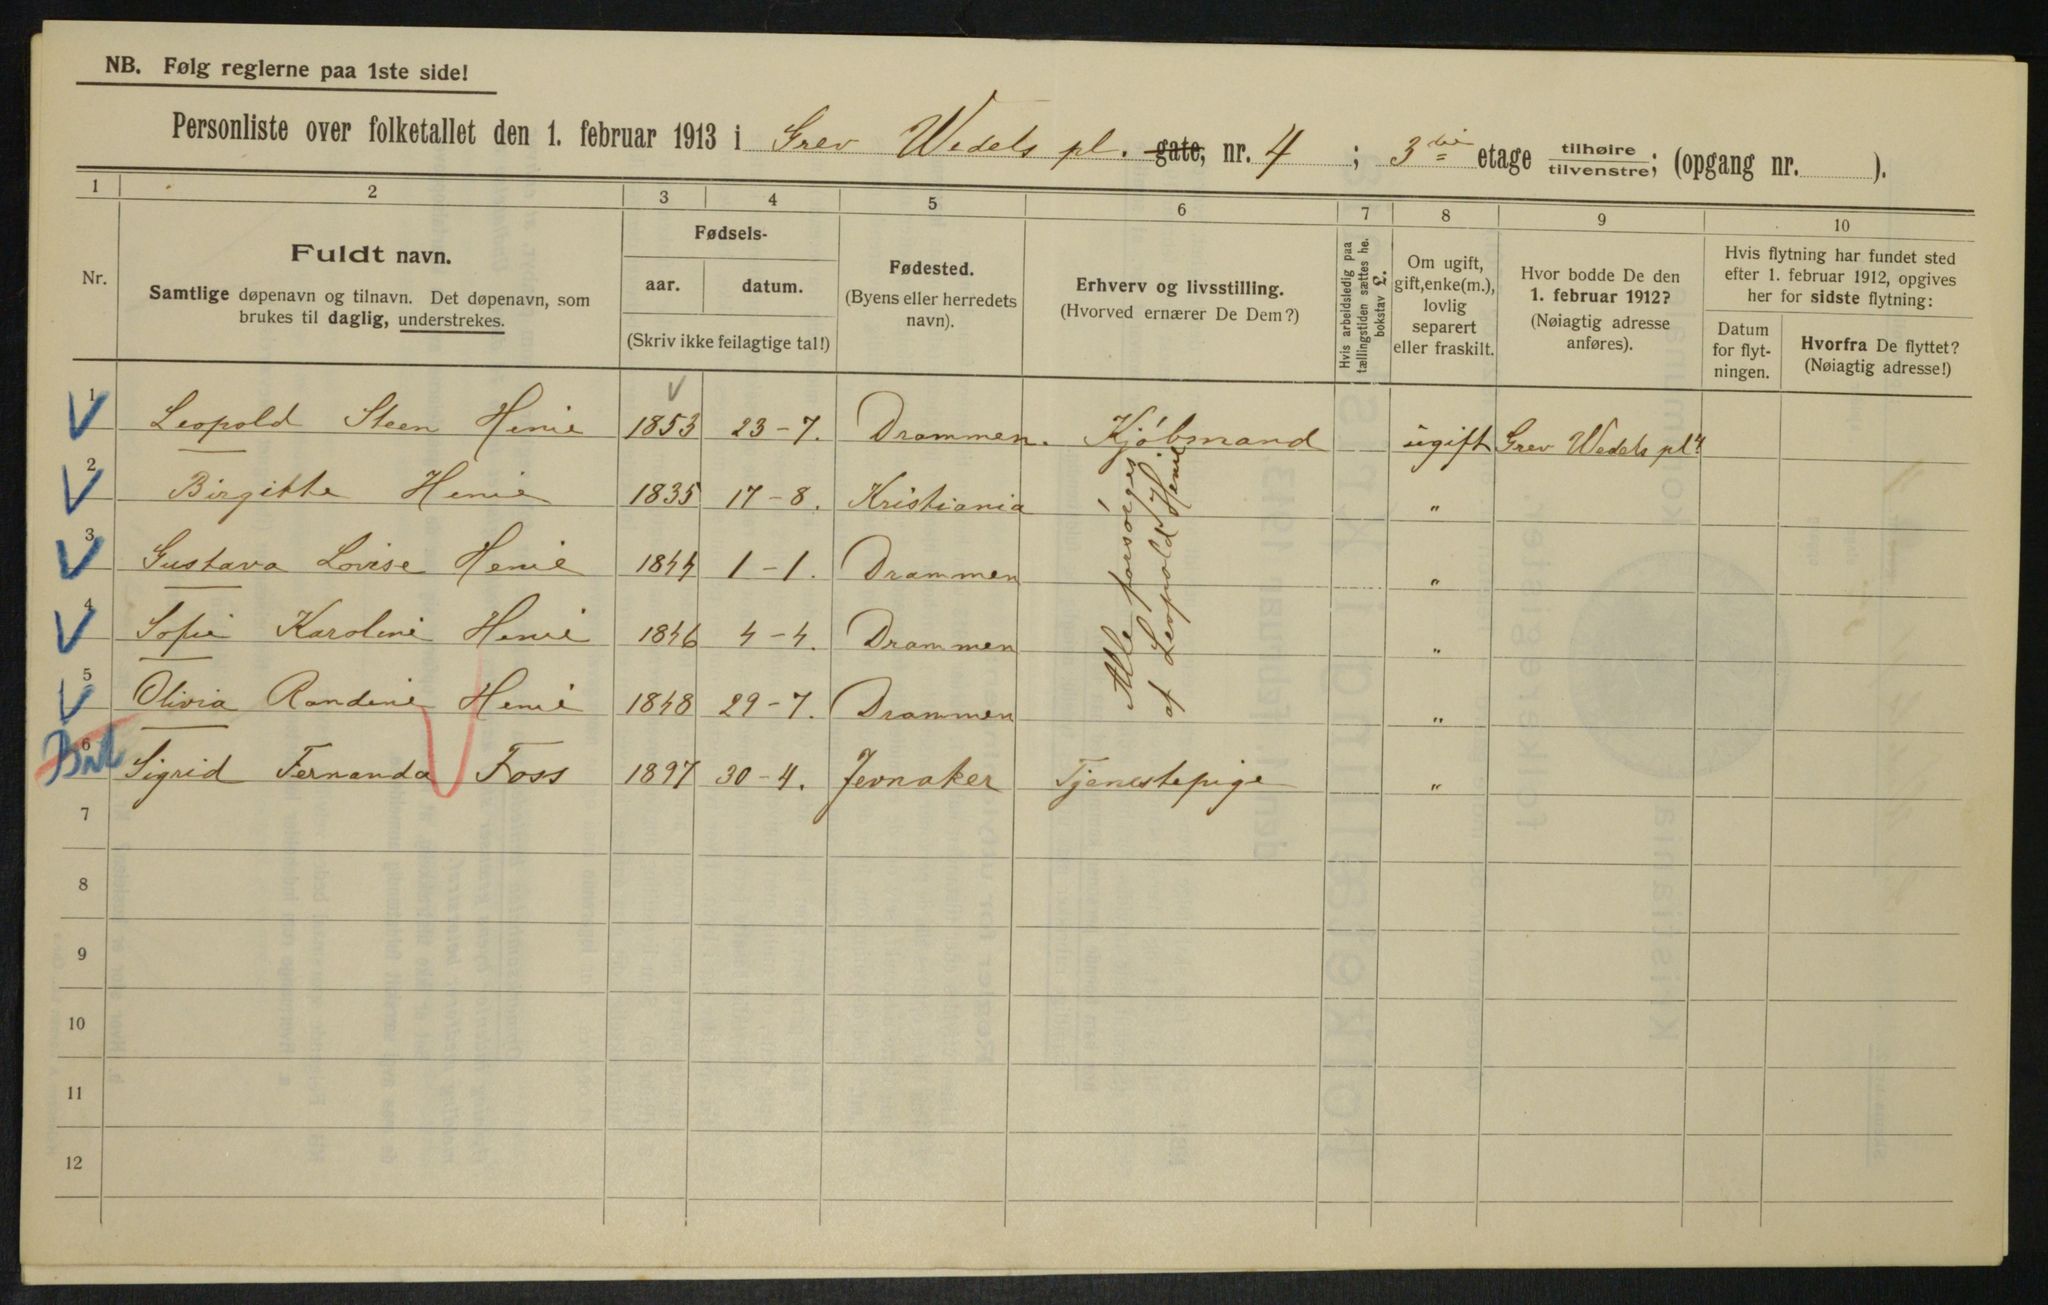 NB. Følg reglerne paa 1ste side!
Personliste over folketallet den 1. februar 1913 i Grev Wedels pl. gate, nr. 4 ; 3die etage tilhøire tilvenstre; (opgang nr. ).
1 2 3 4 5 6 7 8 9 10
Nr.
Fuldt navn.
Samtlige døpenavn og tilnavn. Det døpenavn, som
brukes til daglig, understrekes.
Fødsels-
aar. datum.
(Skriv ikke feilagtige tal!)
Fødested.
(Byens eller herredets
navn).
Erhverv og livsstilling.
(Hvorved ernærer De Dem?)
Hvis arbeidsledig paa
tællingstiden sættes he.
bokstav £.
Om ugift,
gift, enke(m.),
lovlig
separert
eller fraskilt.
Hvor bodde De den
1. februar 1912?
(Nøiagtig adresse
anføres).
Hvis flytning har fundet sted
efter 1. februar 1912, opgives
her for sidste flytning:
Datum
for flyt-
ningen.
Hvorfra De flyttet?
(Nøiagtig adresse!)
1 Leopold Steen Henie 1853 23-7. Drammen. Kjøbmand ugift Grev Wedels pl 4
2 Birgitte Henie 1835 17-8. Kristiania "
3 Gustava Lovise Henie 1844 1-1. Drammen "
4 Sofie Karoline Henie 1846 4-4. Drammen "
5 Olivia Randine Henie 1848 29-7. Drammen "
Alle forsørges
af Leopold Henie
6 Sigrid Fernanda Foss 1897 30-4. Jevnaker Tjenestepige "
7
8
9
10
11
12